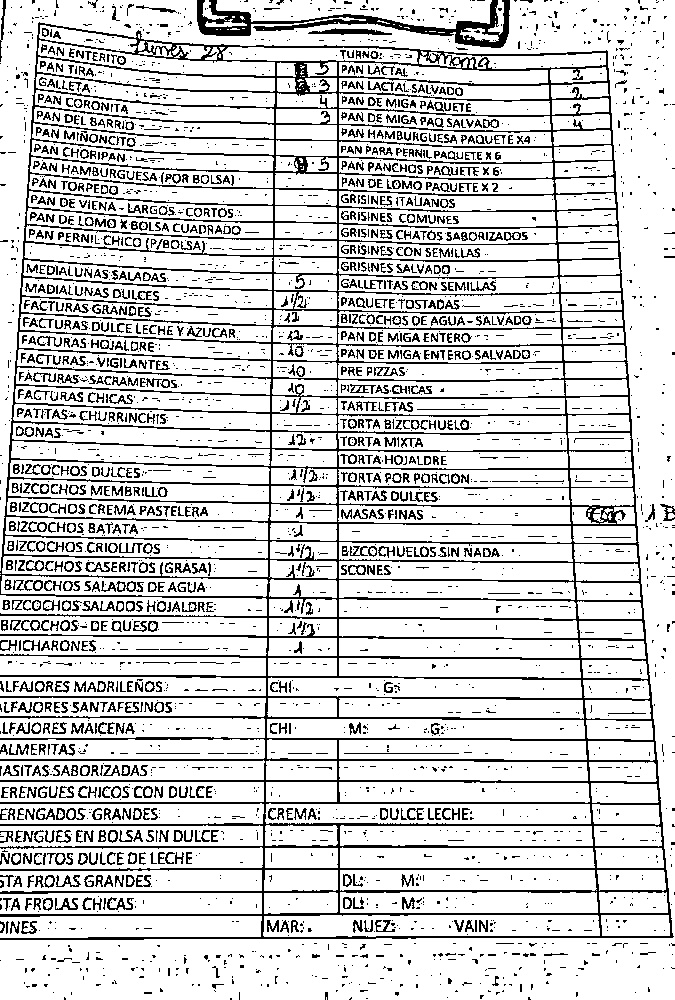 DIA Lunes 28 TURNO: Mañana
PAN ENTERITO 5 PAN LACTAL 2
PAN TIRA 3 PAN LACTAL SALVADO 2
GALLETA 4 PAN DE MIGA PAQUETE 2
PAN CORONITA 3 PAN DE MIGA PAQ SALVADO 4
PAN DEL BARRIO PAN HAMBURGUESA PAQUETE X4
PAN MIÑONCITO PAN PARA PERNIL PAQUETE X 6
PAN CHORIPAN 5 PAN PANCHOS PAQUETE X 6
PAN HAMBURGUESA (POR BOLSA) PAN DE LOMO PAQUETE X 2
PAN TORPEDO GRISINES ITALIANOS
PAN DE VIENA - LARGOS - CORTOS GRISINES COMUNES
PAN DE LOMO X BOLSA CUADRADO GRISINES CHATOS SABORIZADOS
PAN PERNIL CHICO (P/BOLSA) GRISINES CON SEMILLAS
GRISINES SALVADO
MEDIALUNAS SALADAS 5 GALLETITAS CON SEMILLAS
MADIALUNAS DULCES 1 1/2 PAQUETE TOSTADAS
FACTURAS GRANDES 12 BIZCOCHOS DE AGUA - SALVADO
FACTURAS DULCE LECHE Y AZUCAR 12 PAN DE MIGA ENTERO
FACTURAS HOJALDRE 10 PAN DE MIGA ENTERO SALVADO
FACTURAS - VIGILANTES 10 PRE PIZZAS
FACTURAS - SACRAMENTOS 10 PIZZETAS CHICAS
FACTURAS CHICAS 1 1/2 TARTELETAS
PATITAS - CHURRINCHIS TORTA BIZCOCHUELO
DONAS 12 TORTA MIXTA
TORTA HOJALDRE
BIZCOCHOS DULCES 1 1/2 TORTA POR PORCION
BIZCOCHOS MEMBRILLO 1 1/2 TARTAS DULCES
BIZCOCHOS CREMA PASTELERA 1 MASAS FINAS 1 B
BIZCOCHOS BATATA 1
BIZCOCHOS CRIOLLITOS 1 1/2 BIZCOCHUELOS SIN NADA
BIZCOCHOS CASERITOS (GRASA) 1 1/2 SCONES
BIZCOCHOS SALADOS DE AGUA 1
BIZCOCHOS SALADOS HOJALDRE 1 1/2
BIZCOCHOS - DE QUESO 1 1/2
CHICHARONES 1
ALFAJORES MADRILEÑOS CHI G:
ALFAJORES SANTAFESINOS
ALFAJORES MAICENA CHI M: G:
ALMERITAS
MASITAS SABORIZADAS
ERENGUES CHICOS CON DULCE
ERENGADOS GRANDES CREMA: DULCE LECHE:
ERENGUES EN BOLSA SIN DULCE
ÑONCITOS DULCE DE LECHE
STA FROLAS GRANDES DL: M:
STA FROLAS CHICAS DL: M:
DINES MAR: NUEZ: VAIN: